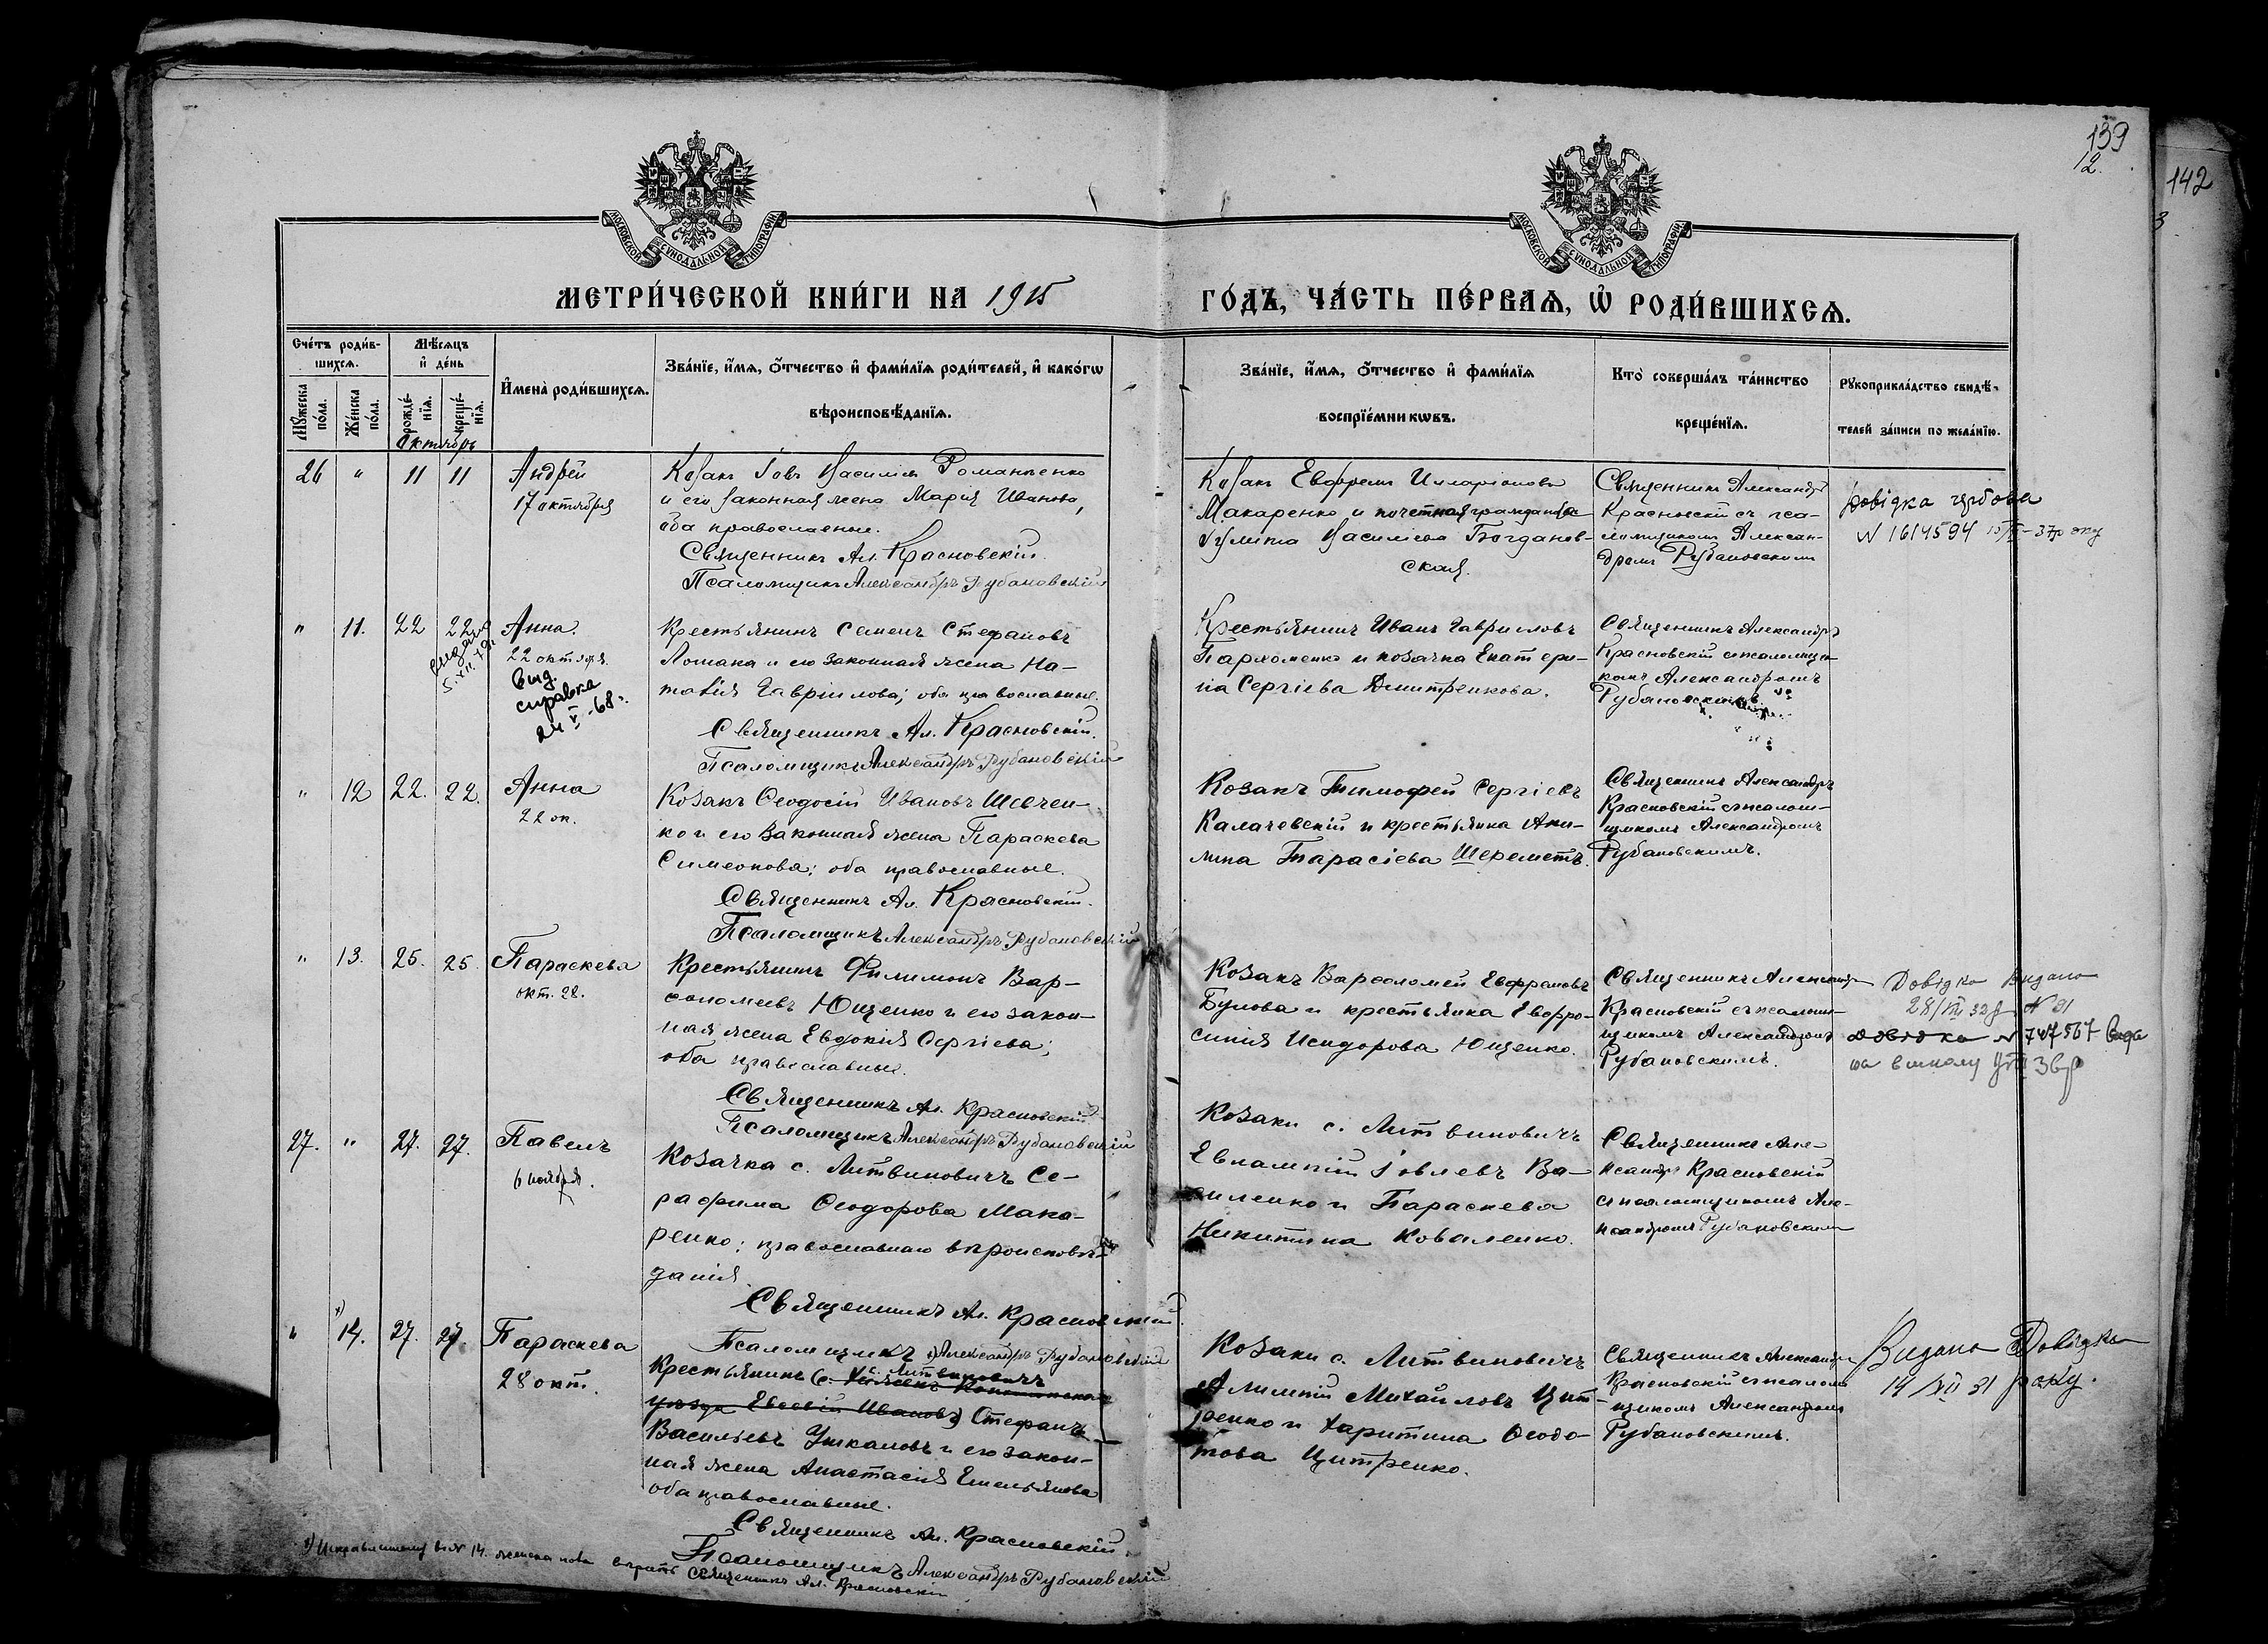 139
12.
142
3
МОСКОВСКОЙ СѴНОДАЛЬНОЙ ТИПОГРАФІИ
МОСКОВСКОЙ СѴНОДАЛЬНОЙ ТИПОГРАФІИ
МЕТРИ́ЧЕСКОЙ КНИ́ГИ НА 1915
ГО́ДЪ, ЧА́СТЬ ПЕ́РВАѦ, Ѡ҆ РОДИ́ВШИХСѦ.
Сче́тъ роди́в-
шихсѧ.
Мѣ́сѧцъ
и҆ де́нь
Мꙋ́жеска по́ла.
Же́нска по́ла.
рожде́-
нїѧ.
креще́-
нїѧ.
И҆мена̀ роди́вшихсѧ.
Зва́нїе, и҆́мѧ, ѻ҆́тчество и҆ фами́лїѧ роди́телей, и҆ како́гѡ
вѣроисповѣ́данїѧ.
Зва́нїе, и҆́мѧ, ѻ҆́тчество и҆ фами́лїѧ
воспрїе́мникѡвъ.
Кто̀ соверша́лъ та́инство
креще́нїѧ.
Рꙋкоприкла́дство свидѣ́-
телей за́писи по жела́нїю.
Октябрь
26 " 11 11 Андрей
17 октября
Козакъ Іовъ Василіевъ Романченко
и его законная жена Марія Иванова,
оба православные.
Священникъ Ал. Красновскій.
Псаломщикъ Александръ Рубановскій
Козакъ Евфремъ Иларіоновъ
Макаренко и почетная гражданка
Улита Василіева Богданов-
ская.
Священникъ Александръ
Красновскій съ пса-
ломщикомъ Алексан-
дромъ Рубановскимъ
Довідка
N 1614594
" 11. 22 22 Анна.
22 октября.
вид.
справка
24 V-68г.
Крестьянинъ Семенъ Стефановъ
Ломака и его законная жена На-
талія Гавріилова; оба православные.
Священникъ Ал. Красновскій.
Псаломщикъ Александръ Рубановскій
Крестьянинъ Иванъ Гавриловъ
Пархоменко и козачка Екатери-
на Сергіева Дмитренкова.
Священникъ Александръ
Красновскій съ псаломщи-
комъ Александромъ
Рубановскимъ.
" 12 22. 22. Анна
22 ок.
Козакъ Ѳеодосій Ивановъ Шевчен-
ко и его законная жена Параскева
Симеонова; оба православные.
Священникъ Ал. Красновскій.
Псаломщикъ Александръ Рубановскій
Козакъ Тимофей Сергіевъ
Калачевскій и крестьянка Аки-
лина Тарасіева Шереметъ.
Священникъ Александръ
Красновскій съ псалом-
щикомъ Александромъ
Рубановскимъ.
" 13. 25. 25. Параскева
окт. 28.
Крестьянинъ Филимонъ Вар-
ѳоломеевъ Ющенко и его закон-
ная жена Евдокія Сергіева;
оба православные.
Священникъ Ал. Красновскій
Псаломщикъ Александръ Рубановскій
Козакъ Варѳоломей Евфремовъ
Бунова и крестьянка Евфро-
синія Исидорова Ющенко.
Священникъ Александръ
Красновскій съ псалом-
щикомъ Александромъ
Рубановскимъ.
Довідка Видана
Довідка N 747567
27. " 27. 27. Павелъ
6 ноября.
Козачка с. Литвиновичъ Се-
рафима Ѳеодорова Мака-
ренко; православнаго вѣроисповѣ-
данія.
Священникъ Ал. Красновскій.
Псаломщикъ Александръ Рубановскій
Козаки с. Литвиновичъ
Евлампій Іовлевъ Ва-
силенко и Параскева
Никитина Коваленко.
Священникъ Але-
ксандръ Красновскій
съ псаломщикомъ Але-
ксандромъ Рубановскимъ
" 14. 27. 27. Параскева
28 окт.
Крестьянинъ с. Литвиновичъ
уѣзда Евсевій Ивановъ) Стефанъ
Васильевъ Ушкаловъ и его закон-
ная жена Анастасія Емельянова
оба православные.
Священникъ Ал. Красновскій.
Псаломщикъ Александръ Рубановскій
Козаки с. Литвиновичъ
Алимпій Михайловъ Цит-
ренко и Харитина Ѳеодо-
това Цитренко.
Священникъ Александръ
Красновскій съ псалом-
щикомъ Александромъ
Рубановскимъ.
Видана Довідка
14/XII 31 року.
вѣрить Священникъ Ал. Красновскій